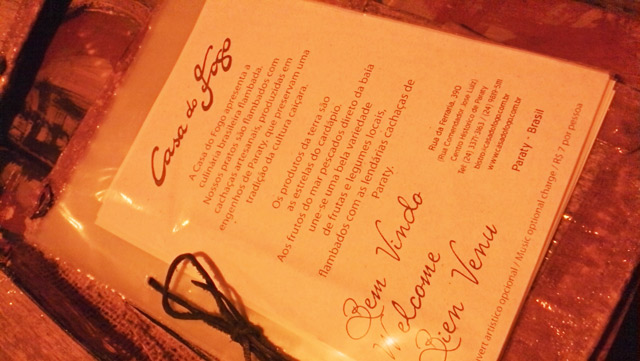 Casa do Fogo
A Casa do Fogo apresenta a
culinária brasileira flambada.
Nossos pratos são flambados com
cachaças artesanais, produzidas em
engenhos de Paraty, que preservam uma
tradição da cultura caiçara.
Os produtos da terra são
as estrelas do cardápio.
Aos frutos do mar pescados direto da baía
une-se uma bela variedade
de frutas e legumes locais,
flambados com as lendárias cachaças de
Paraty.
Rua da Ferraria, 390
(Rua Comendador José Luiz)
Centro Histórico de Paraty
tel: (24) 3371 3163 / (24) 9819 5111
bistro@casadofogo.com.br
www.casadofogo.com.br
Paraty - Brasil
Bem Vindo
Welcome
Bien Venu
uvert artístico opcional / Music optional charge / R$ 7 por pessoa